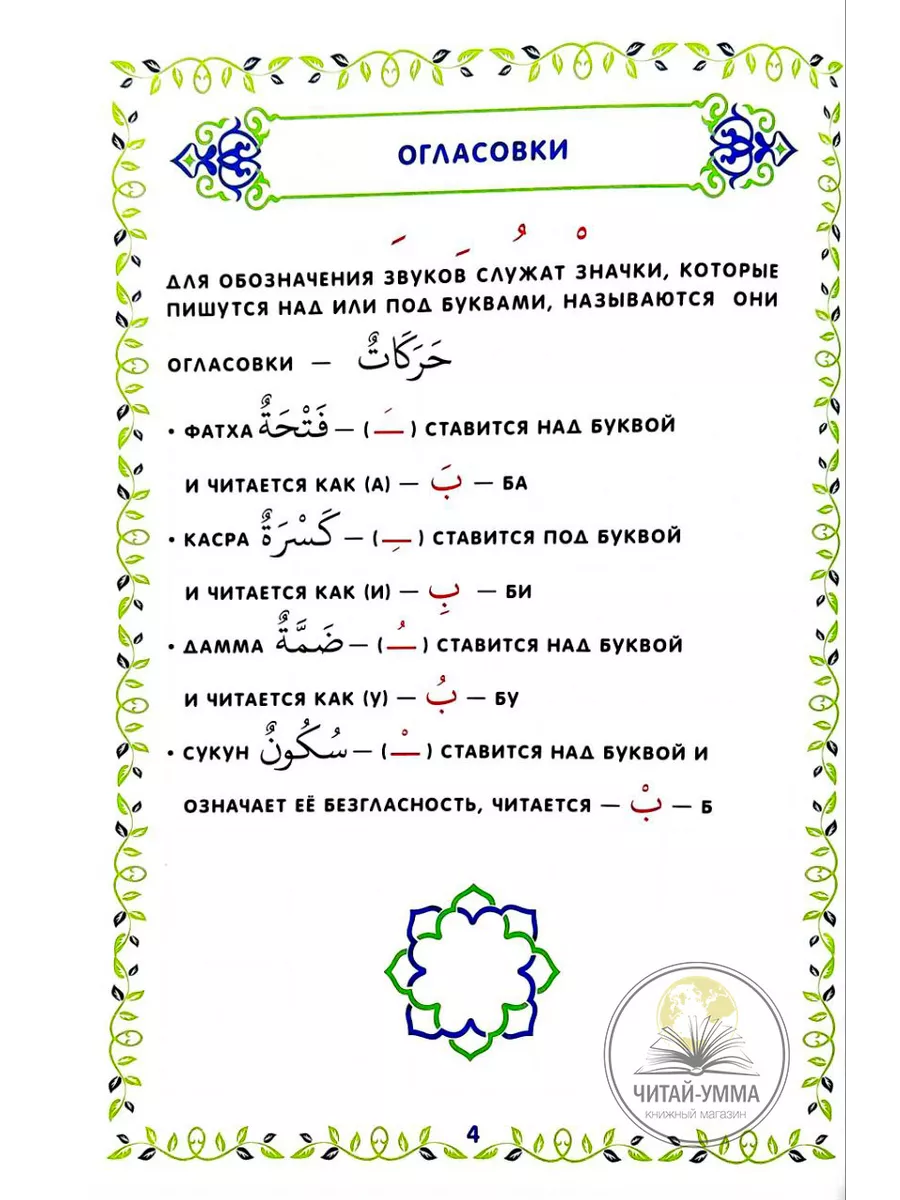 ОГЛАСОВКИ
َ ِ ُ ْ
ДЛЯ ОБОЗНАЧЕНИЯ ЗВУКОВ СЛУЖАТ ЗНАЧКИ, КОТОРЫЕ
ПИШУТСЯ НАД ИЛИ ПОД БУКВАМИ, НАЗЫВАЮТСЯ ОНИ
ОГЛАСОВКИ — حَرَكَاتٌ
• ФАТХА فَتْحَةٌ — (ـَ) СТАВИТСЯ НАД БУКВОЙ
И ЧИТАЕТСЯ КАК (А) — بَ — БА
• КАСРА كَسْرَةٌ — (ـِ) СТАВИТСЯ ПОД БУКВОЙ
И ЧИТАЕТСЯ КАК (И) — بِ — БИ
• ДАММА ضَمَّةٌ — (ـُ) СТАВИТСЯ НАД БУКВОЙ
И ЧИТАЕТСЯ КАК (У) — بُ — БУ
• СУКУН سُكُونٌ — (ـْ) СТАВИТСЯ НАД БУКВОЙ И
ОЗНАЧАЕТ ЕЁ БЕЗГЛАСНОСТЬ, ЧИТАЕТСЯ — بْ — Б
ЧИТАЙ-УММА
КНИЖНЫЙ МАГАЗИН
4